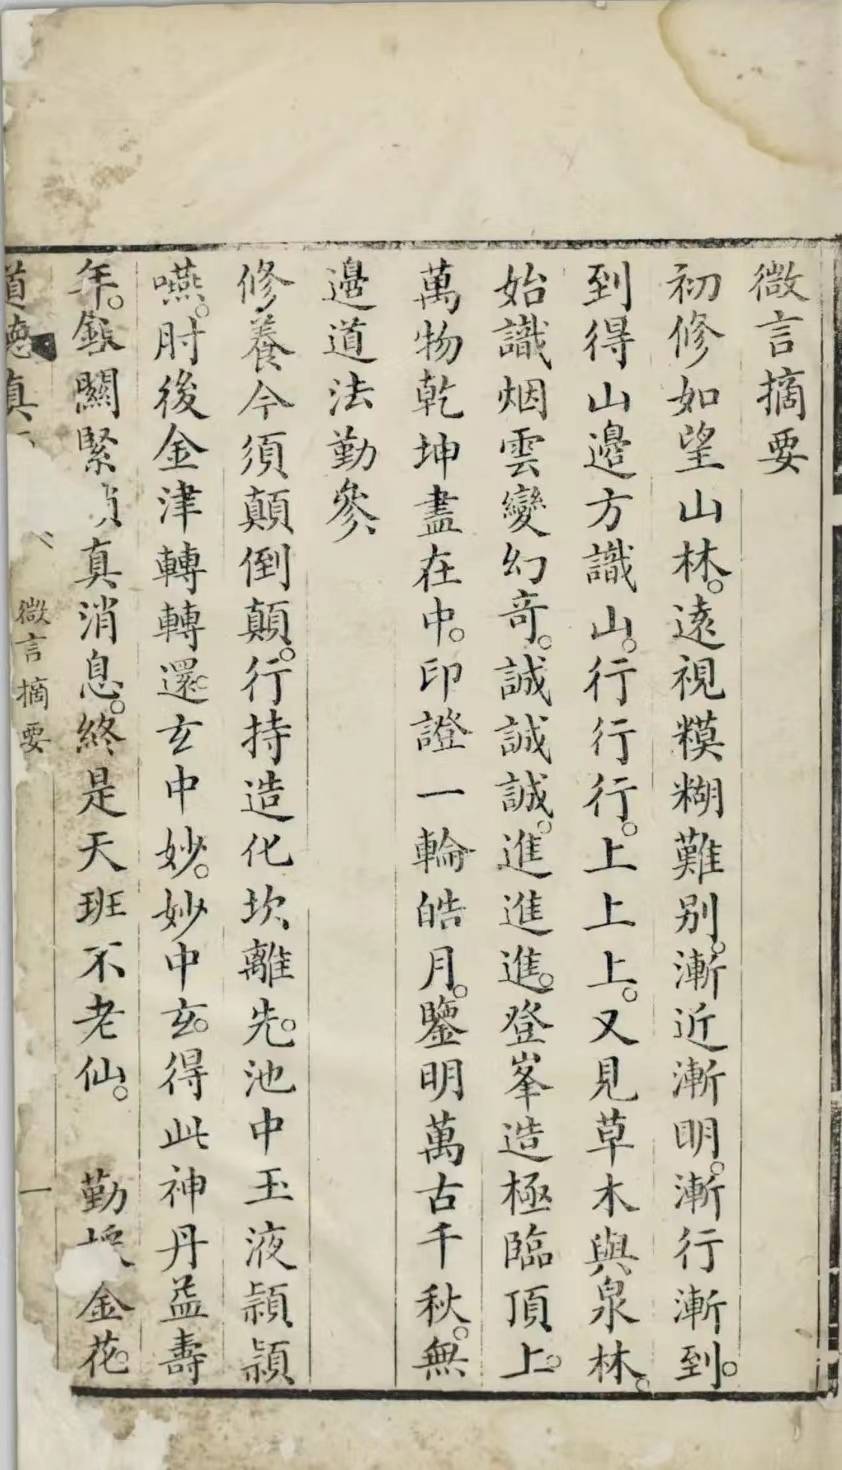 微言摘要
初修如望山林。遠視糢糊難别。漸近漸明。漸行漸到。
到得山邉方識山。行行行。上上上。又見草木與泉林。
始識烟雲變幻奇。誠誠誠。進進進。登峯造極臨頂上。
萬物乾坤盡在中。印證一輪皓月。鑒明萬古千秋。無
邉道法勤參
修養今須顛倒顛。行持造化坎離先。池中玉液頴頴
嚥。肘後金津轉轉還。玄中妙。妙中玄。得此神丹益壽
年。關緊真消息。終是天班不老仙。 勤金花。
道德真
微言摘要
一